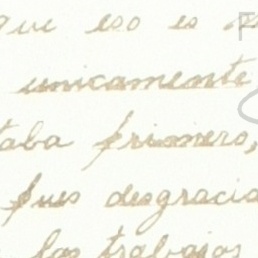 que eso es
unicamente
taba primero,
pues desgracia
los trabajos